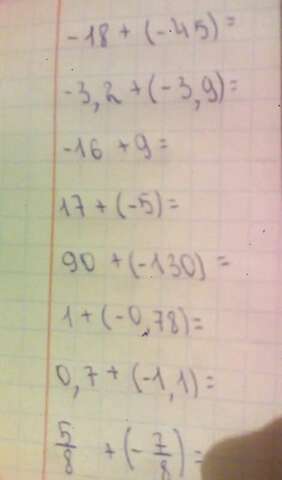 -18 + (-45) =
-3,2 + (-3,9) =
-16 + 9 =
17 + (-5) =
90 + (-130) =
1 + (-0,78) =
0,7 + (-1,1) =
5/8 + (-7/8) =